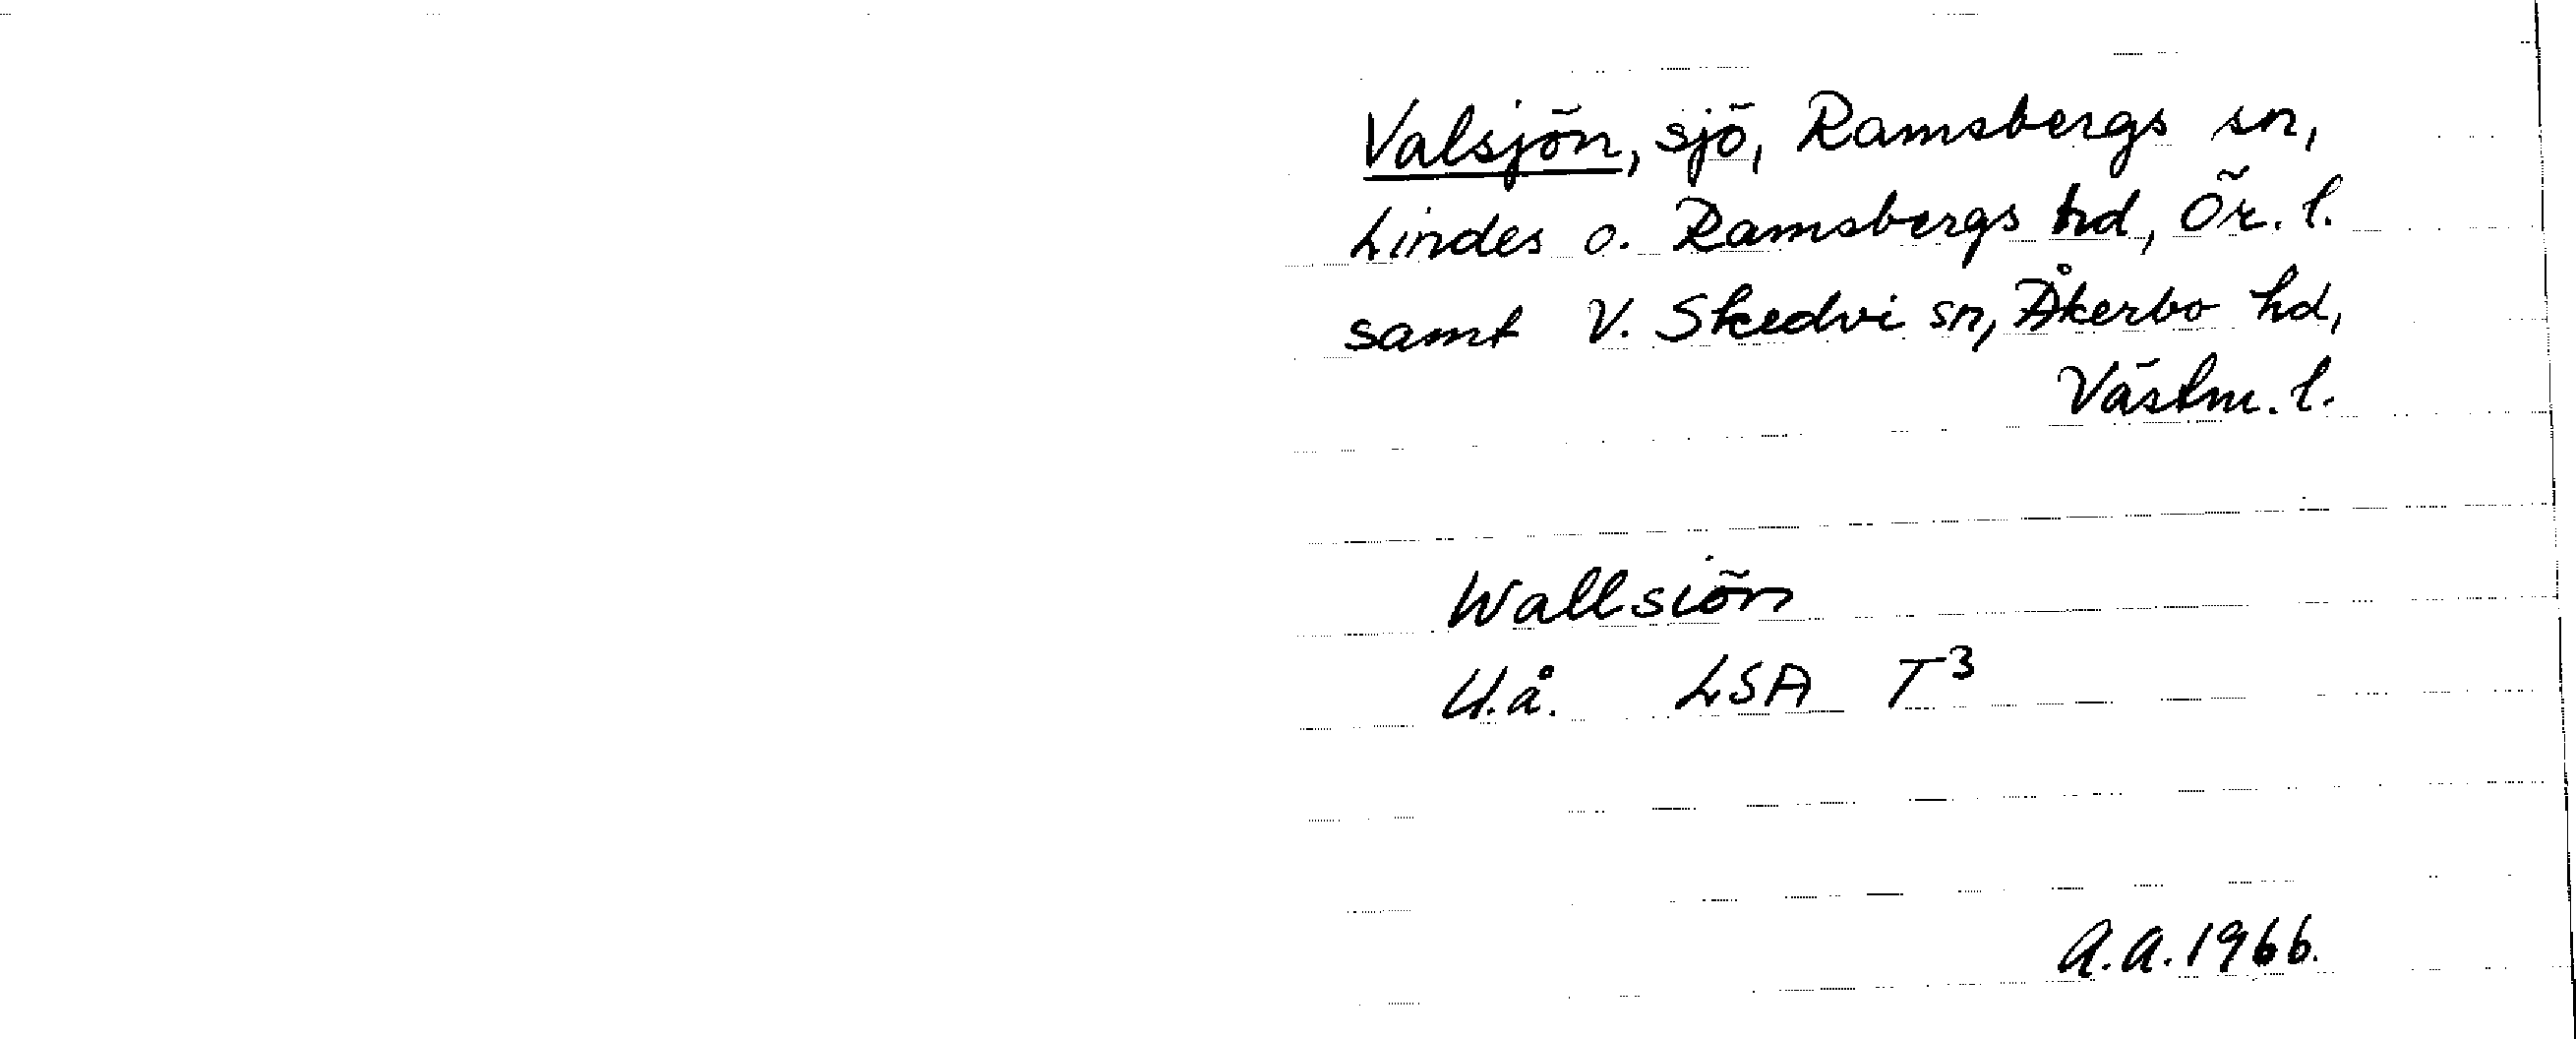 Valsjön, sjö, Ramsbergs sn,
Lindes o. Ramsbergs hd, Ör. l.
samt V. Skedvi sn, Åkerbo hd,
Västm. l.
Wallsiön
U.å. LSA T³
A.A. 1966.